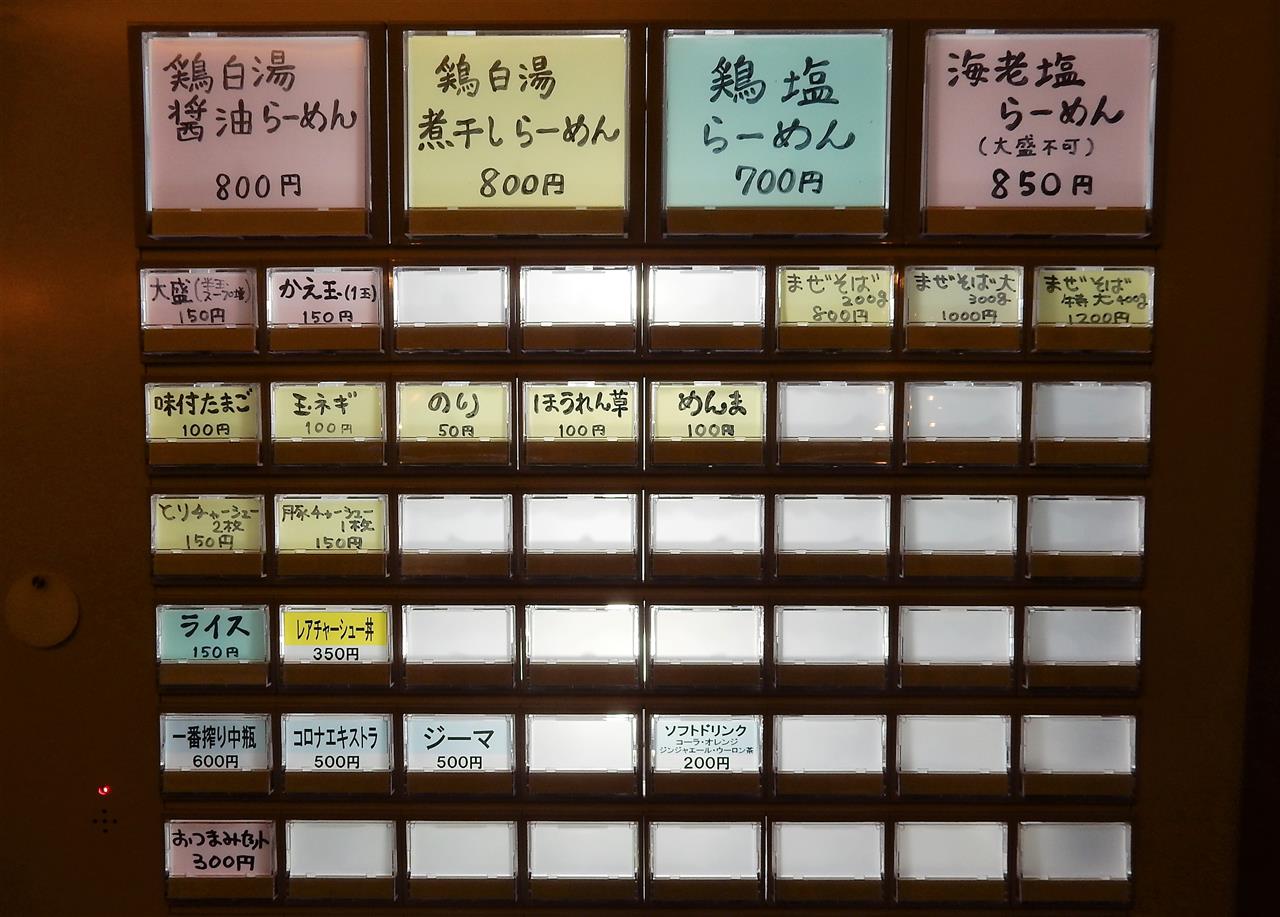 鶏白湯
醤油らーめん
800円
鶏白湯
煮干しらーめん
800円
鶏塩
らーめん
700円
海老塩
らーめん
(大盛不可)
850円
大盛(半玉
スープ増)
150円
かえ玉(1玉)
150円
まぜそば
200g
800円
まぜそば大
300g
1000円
まぜそば
特大400g
1200円
味付たまご
100円
玉ネギ
100円
のり
50円
ほうれん草
100円
めんま
100円
とりチャーシュー
2枚
150円
豚チャーシュー
1枚
150円
ライス
150円
レアチャーシュー丼
350円
一番搾り中瓶
600円
コロナエキストラ
500円
ジーマ
500円
ソフトドリンク
コーラ・オレンジ
ジンジャエール・ウーロン茶
200円
おつまみセット
300円